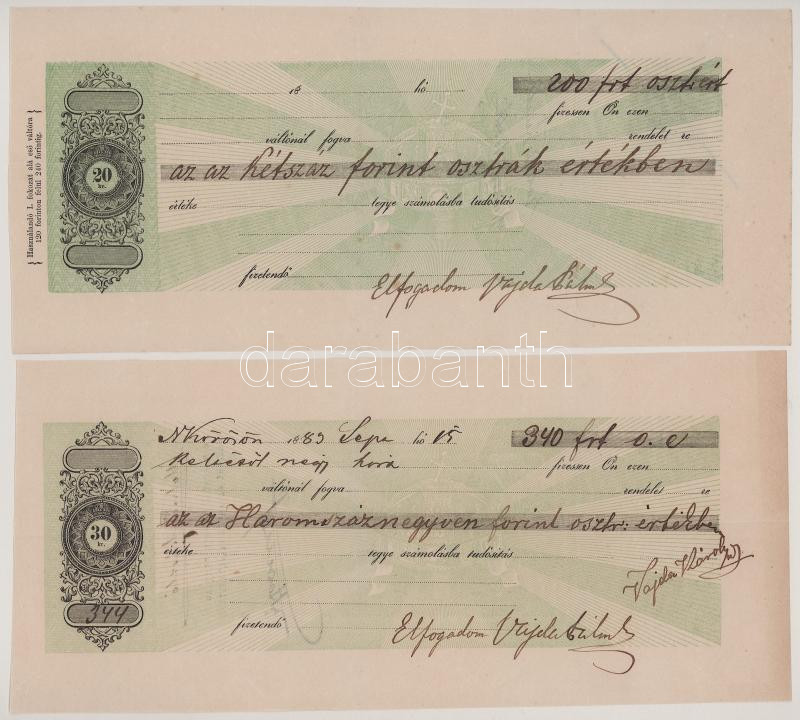 { Használandó I. fokozat alá eső váltóra
120 forinton felül 240 forintig. }
18 hó 200 frt osztért
fizessen Ön ezen
váltónál fogva rendelet re
20
kr.
az az Kétszáz forint osztrák értékben
értéke tegye számolásba tudósitás
fizetendő
Elfogadom Vajda Pálné
darabanth
NKőrösön 1883 Sept hó 15 340 frt o. é
Kelttől négy hóra fizessen Ön ezen
váltónál fogva rendelet re
30
kr.
az az Háromszáznegyven forint osztr: értékben
értéke tegye számolásba tudósitás
Vajda Károly
344
fizetendő
Elfogadom Vajda Pálné